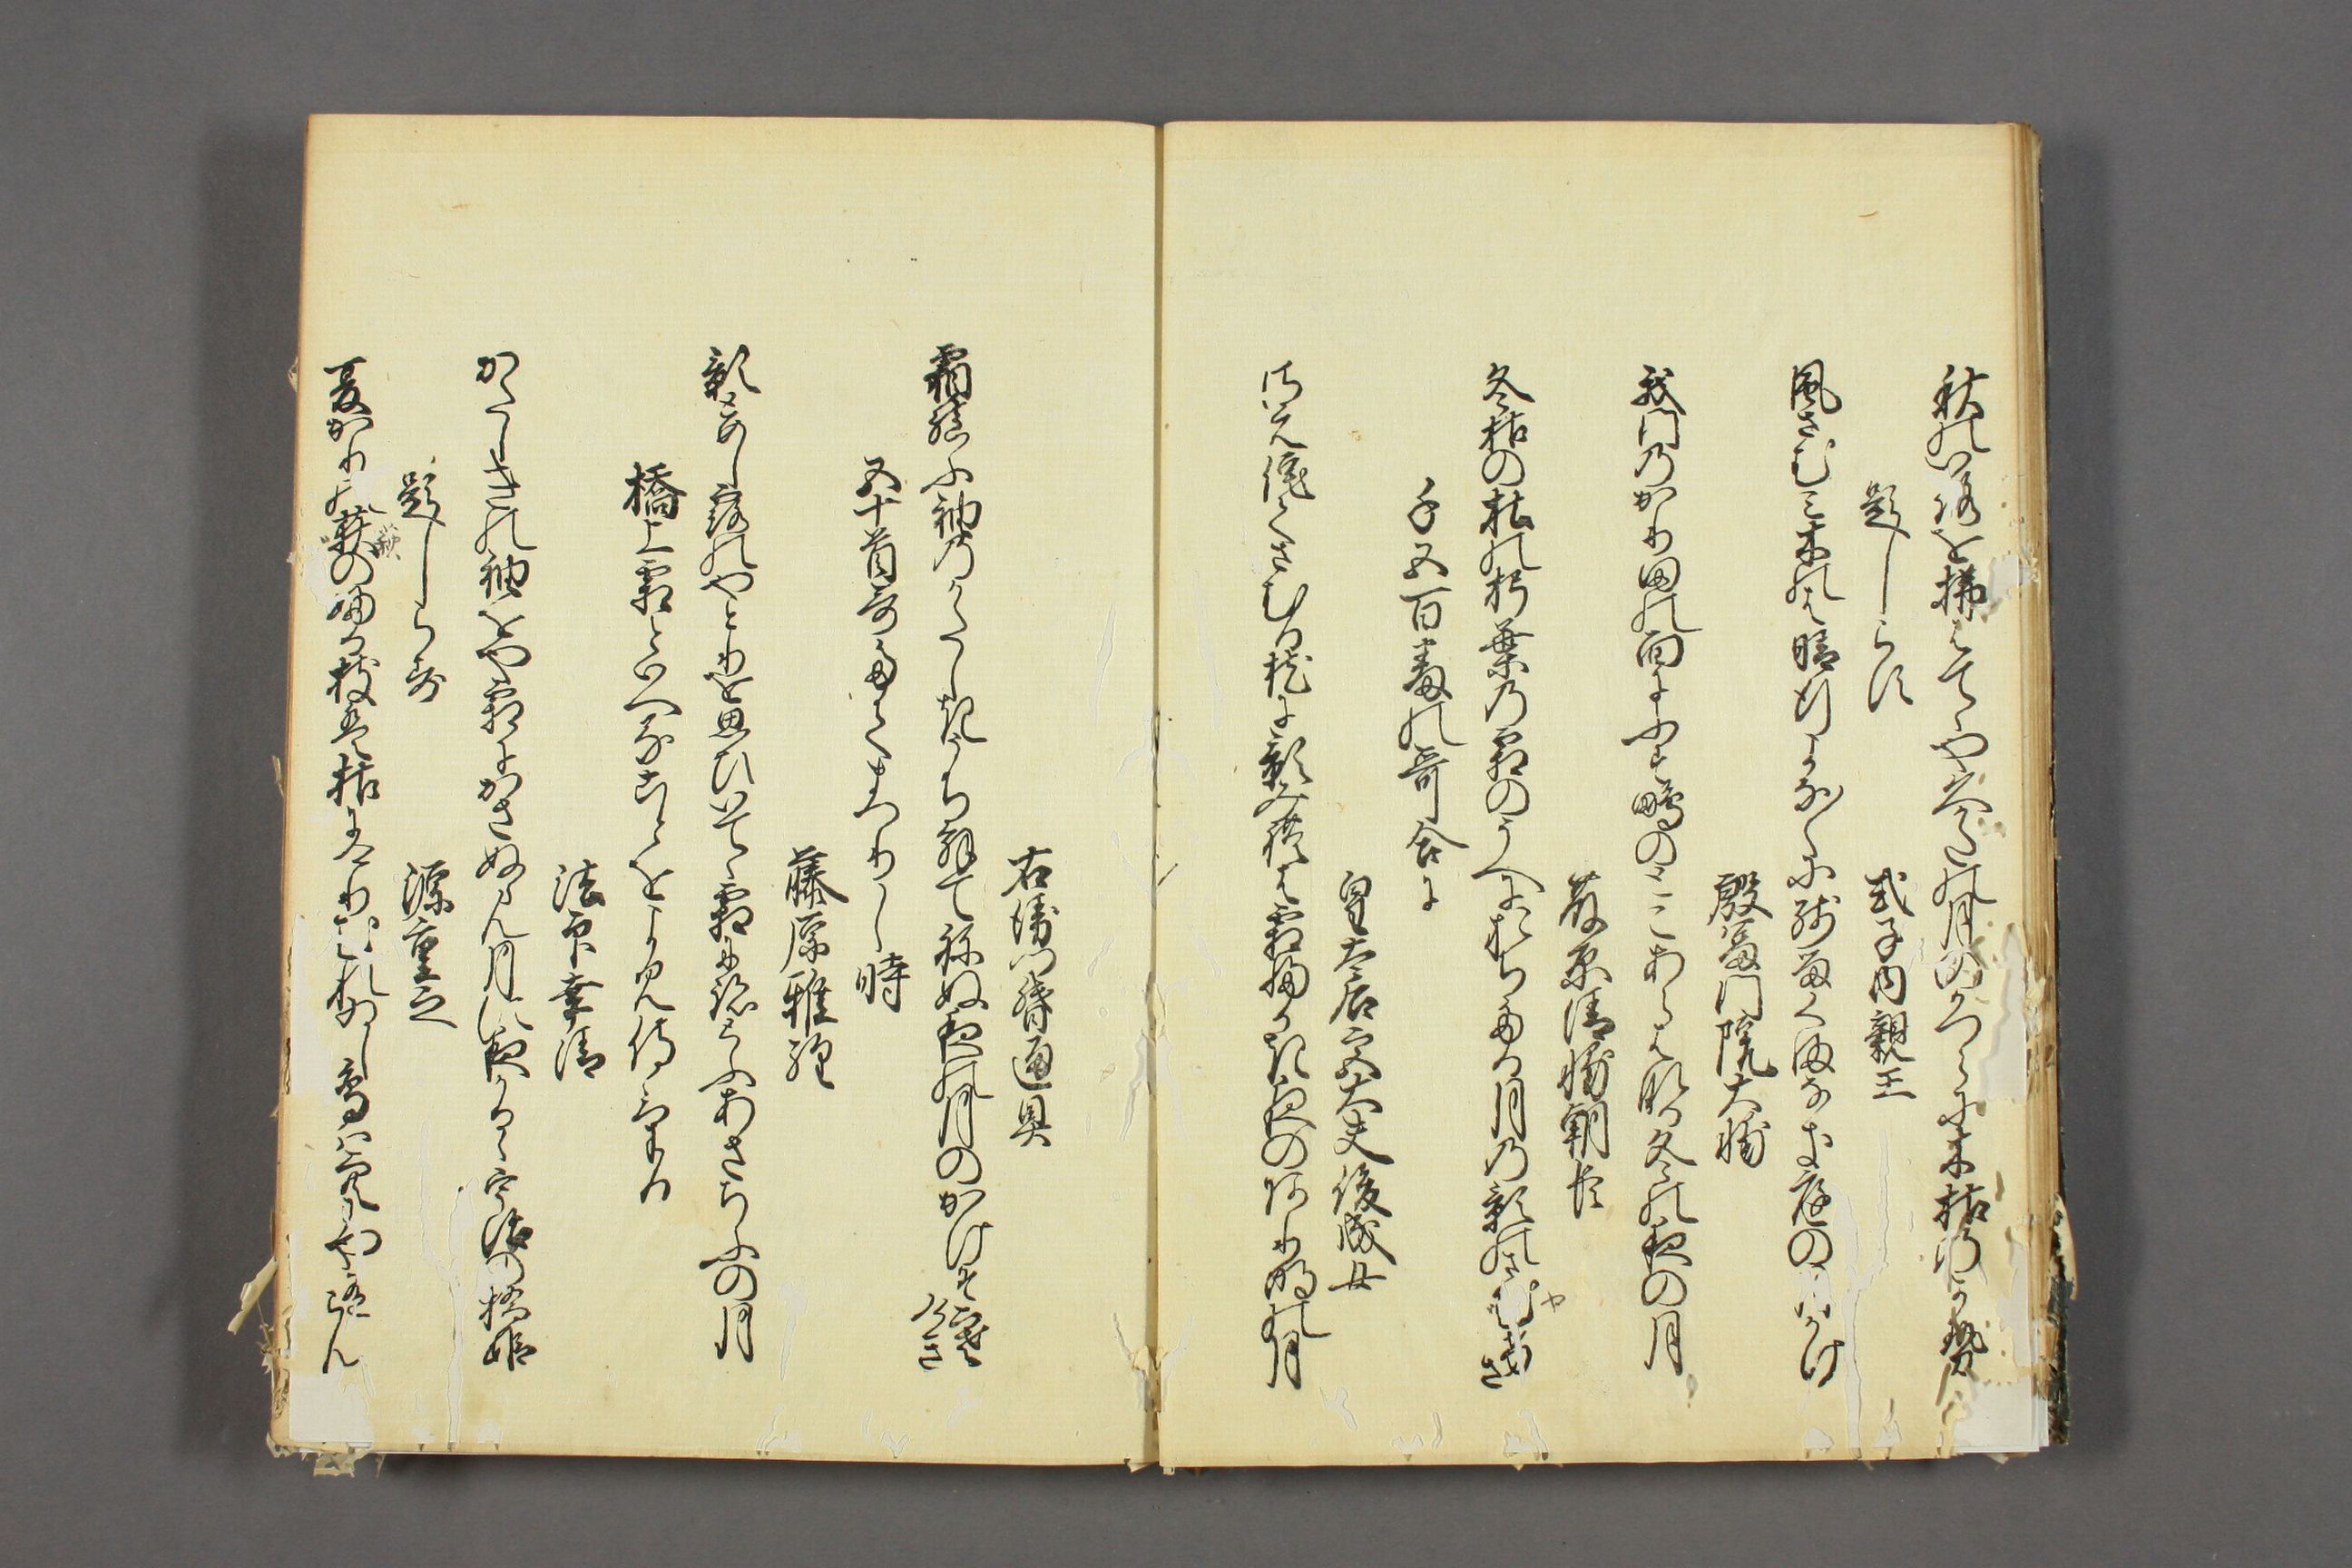 秋のいろを拂はてゝや久かたの月のかつらに木枯のかせ
題しらす
式子内親王
風さむミ木の葉晴行よな〱に残るくまなき庭の月かけ
殷富門院大輔
我門のかり田の面にふす鴫のとこあらはなる冬の夜の月
藤原清輔朝臣
冬枯の杜の朽葉の霜のうへにおちたる月の影のさむけさ
や
千五百番の哥合に
皇太后宮大夫俊成女
さえ侘てさむる枕に影みれは霜ふかき夜のあり明の月
右衛門督通具
霜結ふ袖のかたしきうち解てねぬ夜の月のかけそ寒けき
五十首哥たてまつりし時
藤原雅経
影とめし露のやとりを思ひいてゝ霜に跡とふあさちふの月
橋上霜といへることをよみ侍りける
法印幸清
かたしきの袖をや霜にかさぬらん月に夜かるゝ宇治の橋姫
題しらす
源重之
夏かりの荻のふる枝も枯にけりむれゐし鳥は空にや有らん